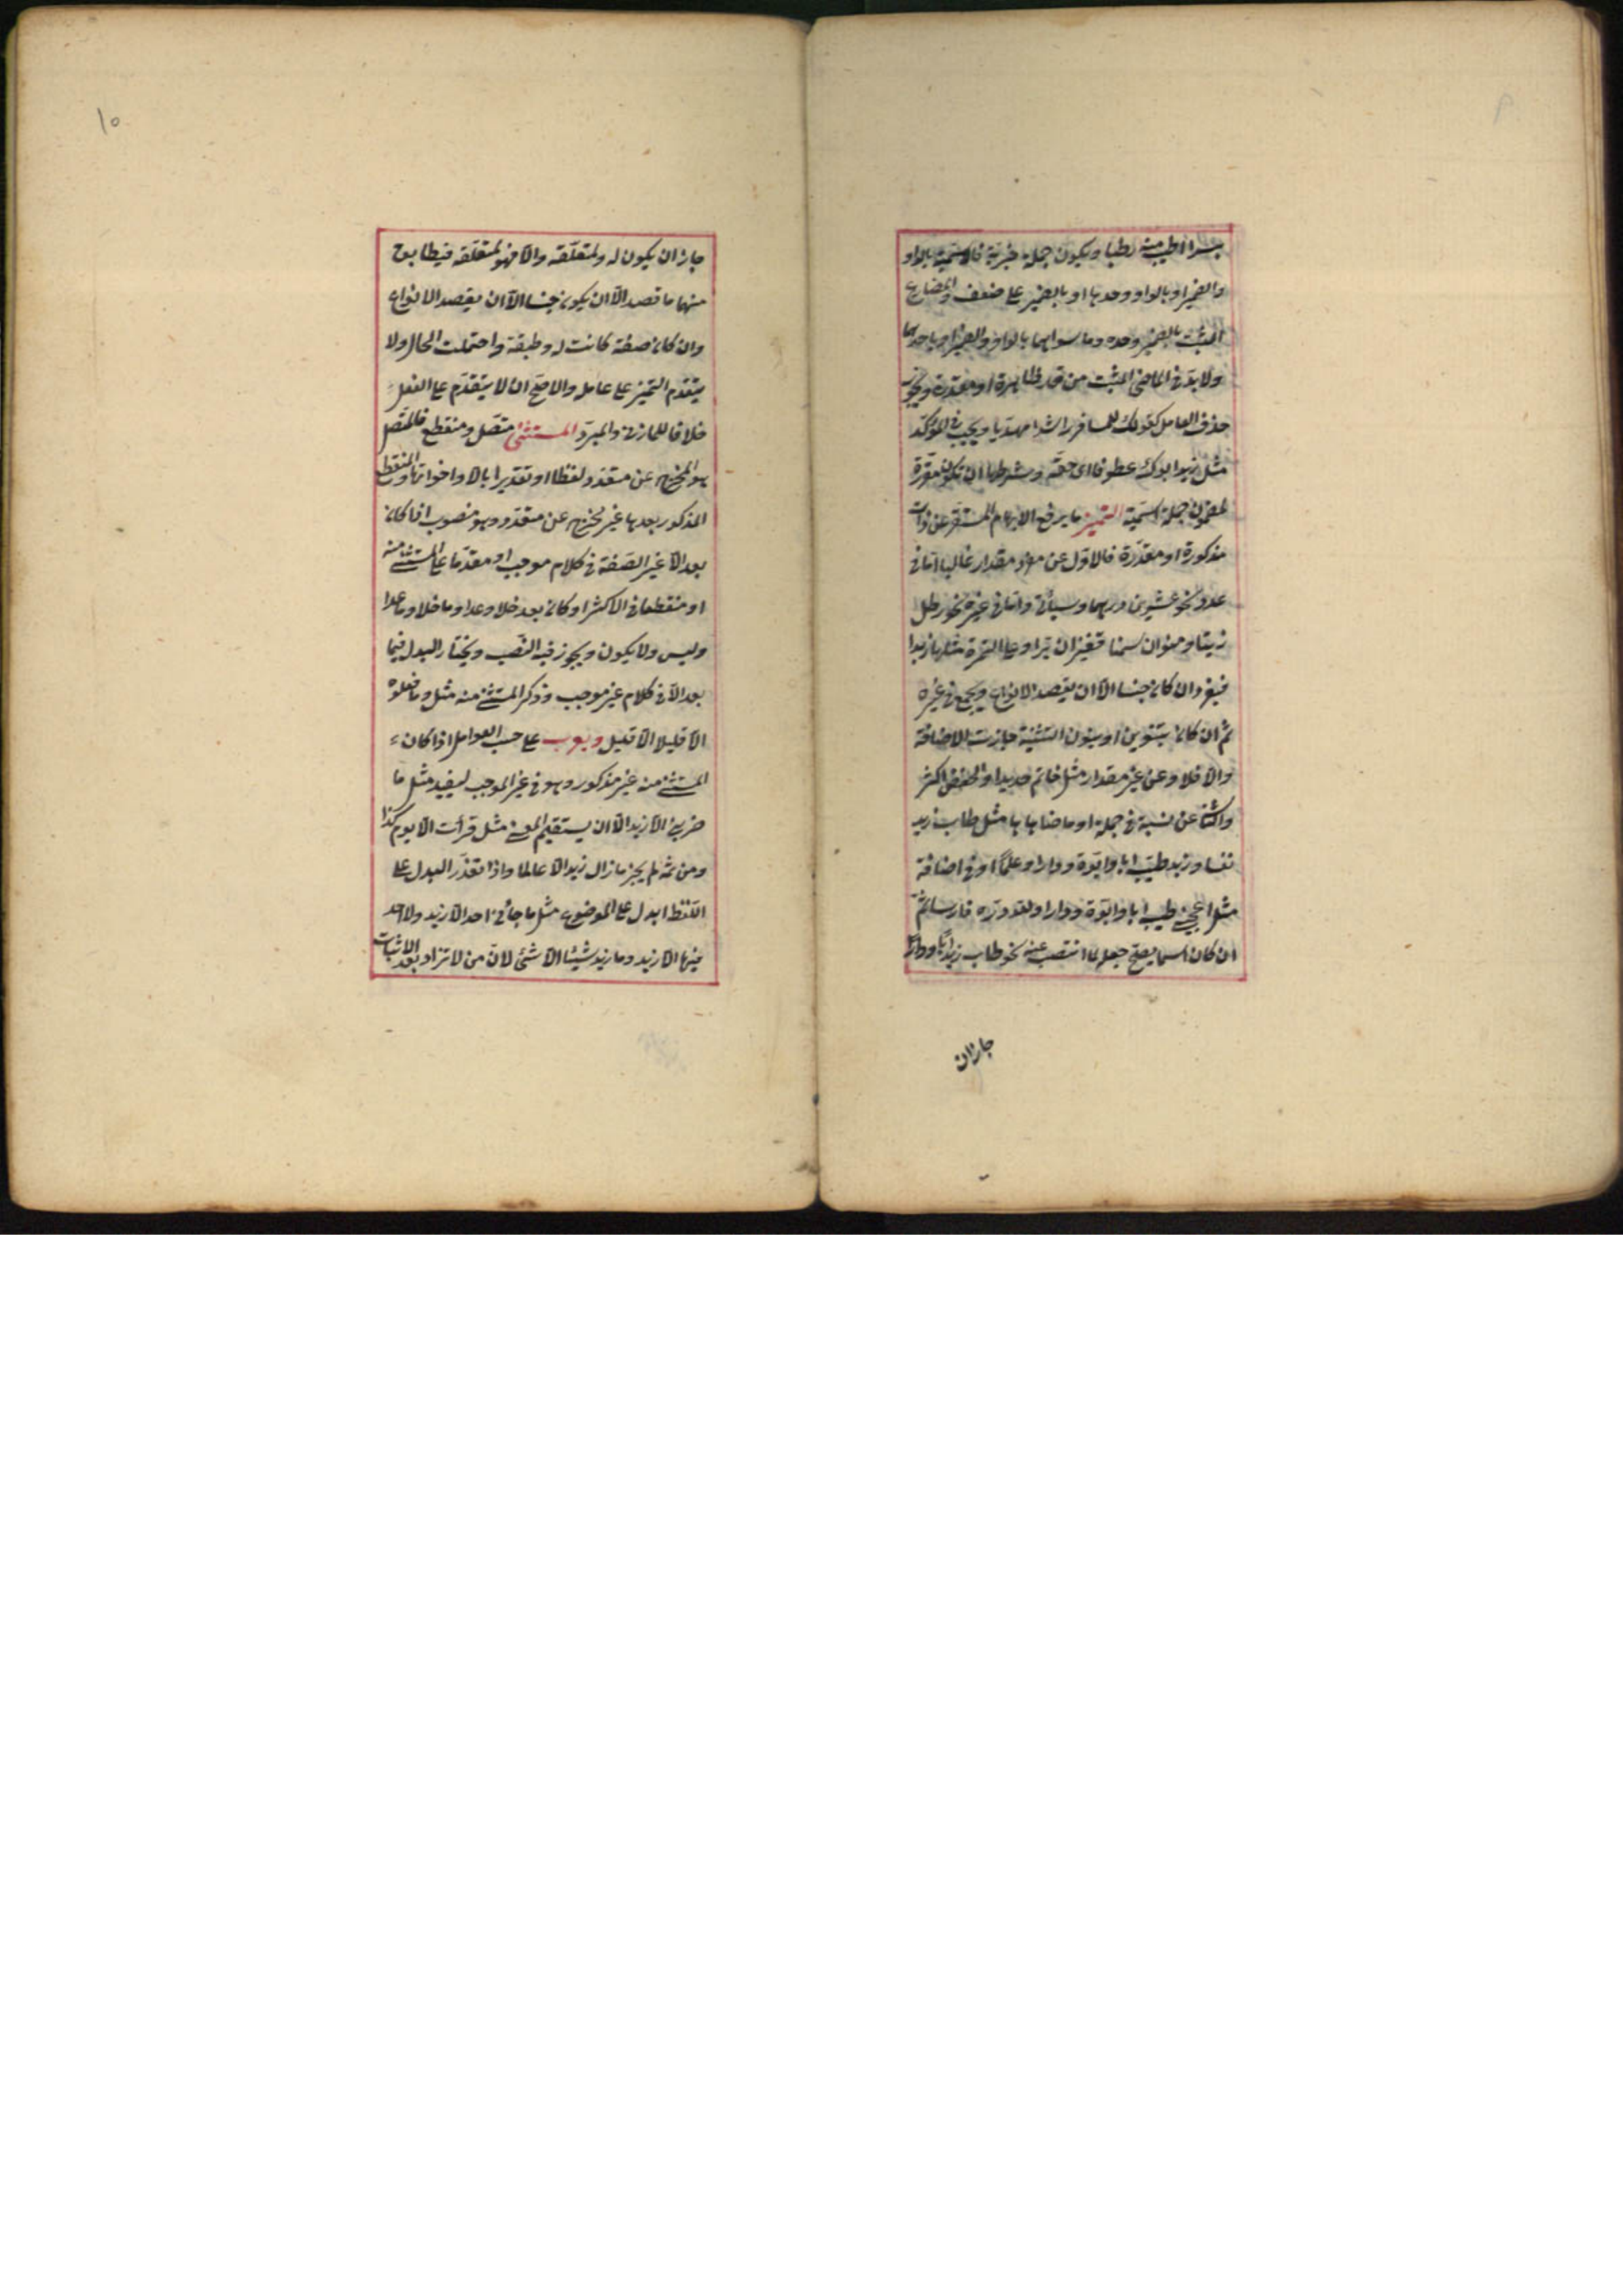 بسرا اطيب منه رطبا ويكون جملة خبرية فالاسمية بالواو
والضمير او بالواو وحدها او بالضمير على ضعف والمضارع
المثبت بالضمير وحده وما سواهما بالواو والضمير او باحدهما
ولا بد في الماضي المثبت من قد ظاهرة او مقدرة ويجوز
حذف العامل كقولك للمسافر راشدا مهديا ويجب في المؤكد
مثل زيد ابوك عطوفا اى حقه وشرطها ان تكون مقررة
لمضمون جملة اسمية التميز ما يرفع الابهام المستقر عن ذات
مذكورة او مقدرة فالاول عن مفرد مقدار غالبا اما في
عدد نحو عشرين درهما وسيأتي واما في غيره نحو رطل
زيتا ومنوان سمنا قفيزان برا وعلى التمرة مثلها زبدا
فيفرد ان كان جنسا الا ان يقصد الانواع ويجمع في غيره
ثم ان كان بتنوين او بنون التثنية جازت الاضافة
والا فلا وعن غير مقدار مثل خاتم حديدا والخفض اكثر
والثاني عن نسبة في جملة او ما ضاهاها مثل طاب زيد
نفسا وزيد طيب ابا وابوة ودارا وعلما او في اضافة
مثل اعجبني طيبه ابا وابوة ودارا ولله دره فارسا ثم
ان كان اسما يصح جعله لما انتصب عنه نحو طاب زيد ابا ودارا
جاز ان
١٥
جاز ان يكون له ولمتعلقه والا فهو لمتعلقه فيطابق
منهما ما قصد الا ان يكون جنسا الا ان يقصد الانواع
وان كان صفة كانت له وطبقه واحتملت الحال ولا
يتقدم التميز على عامله والاصح ان لا يتقدم على الفعل
خلافا للمازني والمبرد المستثنى متصل ومنقطع فالمتصل
هو المخرج عن متعدد لفظا او تقديرا بالا واخواتها والمنقطع
المذكور بعدها غير مخرج عن متعدد وهو منصوب اذا كان
بعد الا غير الصفة في كلام موجب او مقدما على المستثنى منه
او منقطعا في الاكثر او كان بعد خلا وعدا وما خلا وما عدا
وليس ولا يكون ويجوز فيه النصب ويختار البدل فيما
بعد الا في كلام غير موجب وذكر المستثنى منه مثل وما فعلوه
الا قليلا الا قليل ويعرب على حسب العوامل اذا كان
المستثنى منه غير مذكور وهو في غير الموجب ليفيد مثل ما
ضربني الا زيد الا ان يستقيم المعنى مثل قرأت الا يوم كذا
ومن ثمة لم يجز ما زال زيد الا عالما واذا تعذر البدل على
اللفظ ابدل على الموضع مثل ما جائني احد الا زيد ولا احد
فيها الا زيد وما زيد شيئا الا شئ لان من لا تزاد بعد الاثبات